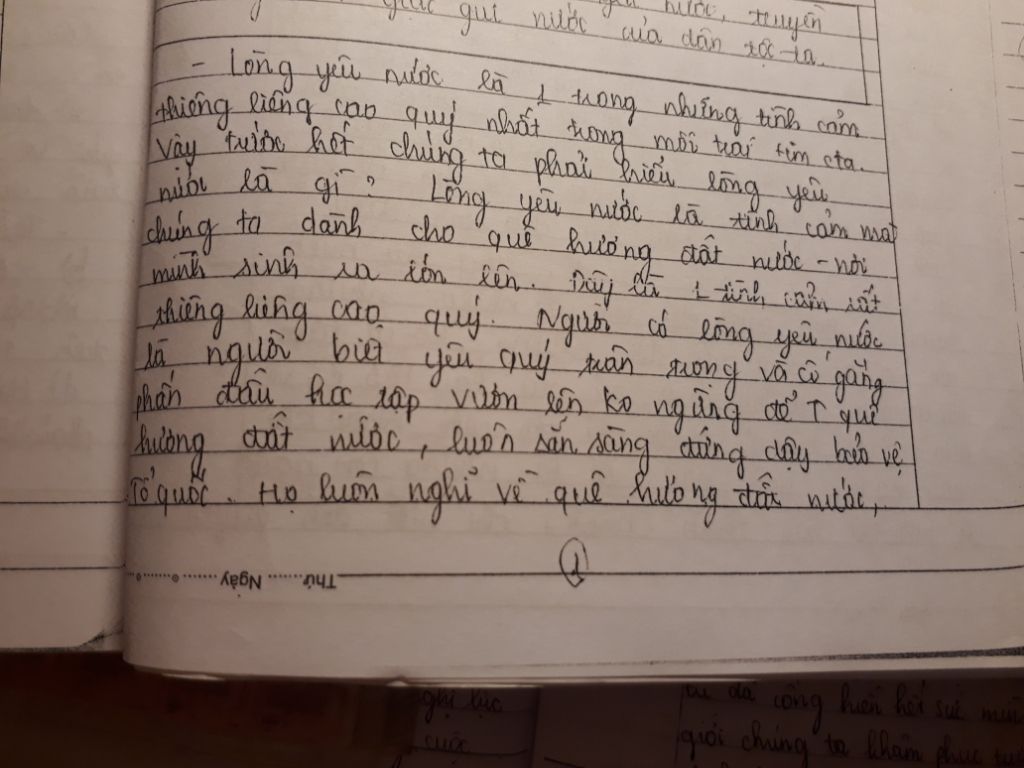 nước, truyền
giữ nước của dân tộc ta.
- Lòng yêu nước là 1 trong những tình cảm
thiêng liêng cao quý nhất trong mỗi trái tim cta.
Vậy trước hết chúng ta phải hiểu lòng yêu
nước là gì? Lòng yêu nước là tình cảm mà
chúng ta dành cho quê hương đất nước - nơi
mình sinh ra lớn lên. Đây là 1 tình cảm rất
thiêng liêng cao quý. Người có lòng yêu nước
là người biết yêu quý trân trọng và cố gắng
phấn đấu học tập vươn lên ko ngừng để ↑ quê
hương đất nước, luôn sẵn sàng đứng dậy bảo vệ
Tổ quốc. Họ luôn nghĩ về quê hương đất nước,
1
Thứ ........ Ngày ........
nghị lực
cuộc
đã cống hiến hết sức mình
giới chúng ta khâm phục